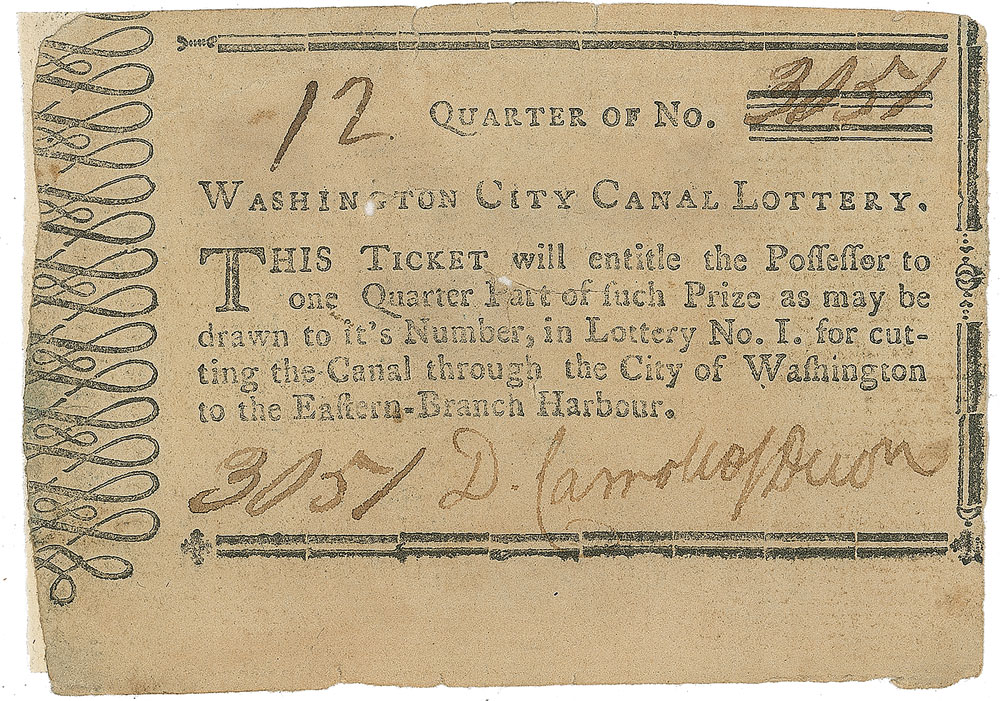 12. QUARTER OF No. 3051
WASHINGTON CITY CANAL LOTTERY.
THIS TICKET will entitle the Poſſeſſor to
one Quarter Part of ſuch Prize as may be
drawn to it's Number, in Lottery No. I. for cut-
ting the Canal through the City of Waſhington
to the Eaſtern-Branch Harbour.
3051 D. Carroll of Dudn